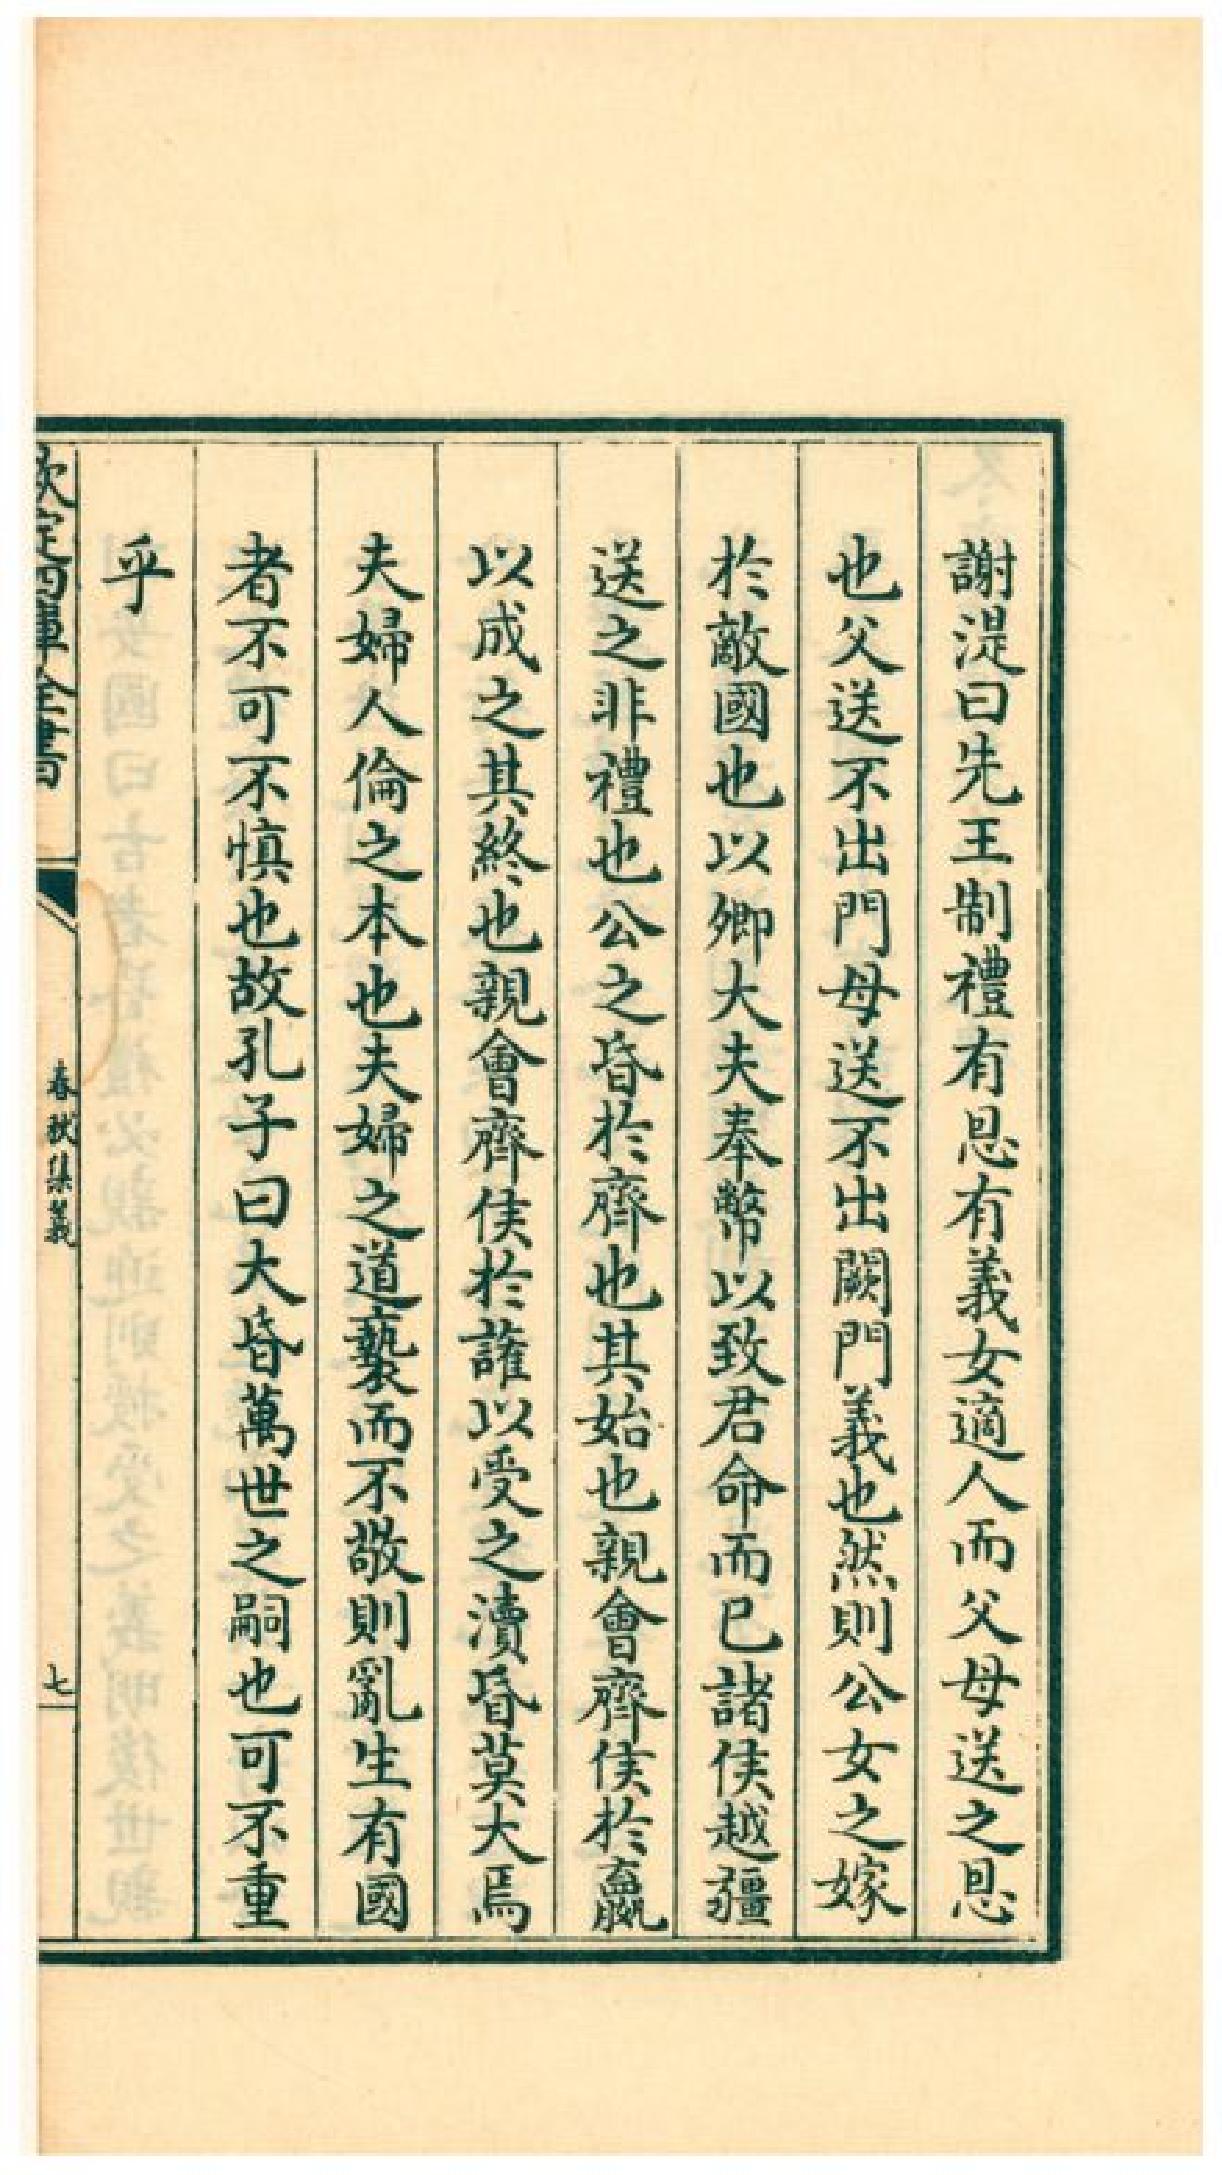 謝湜曰先王制禮有恩有義女適人而父母送之恩
也父送不出門母送不出闕門義也然則公女之嫁
於敵國也以卿大夫奉幣以致君命而已諸侯越疆
送之非禮也公之昏於齊也其始也親會齊侯於嬴
以成之其終也親會齊侯於讙以受之瀆昏莫大焉
夫婦人倫之本也夫婦之道褻而不敬則亂生有國
者不可不慎也故孔子曰大昏萬世之嗣也可不重
乎
欽定四庫全書
春秋集義
七